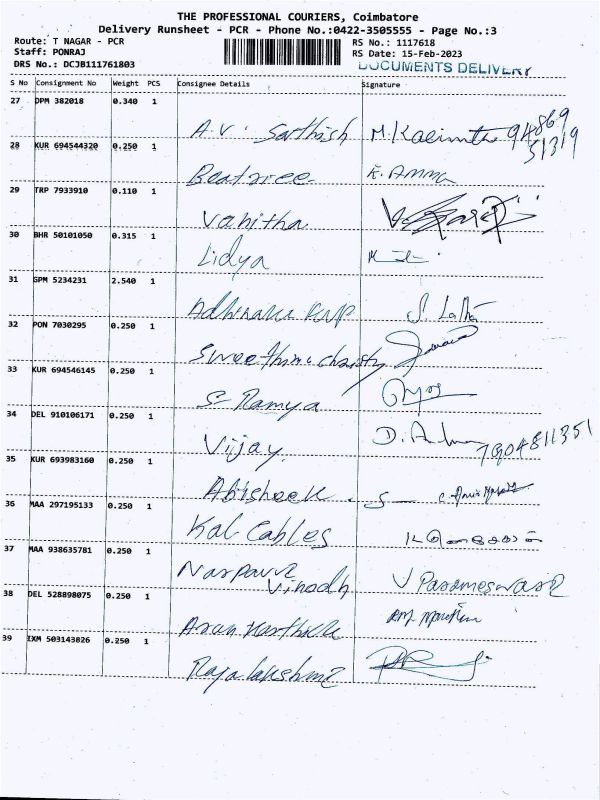 THE PROFESSIONAL COURIERS, Coimbatore
Delivery Runsheet - PCR - Phone No.:0422-3505555 - Page No.:3
Route: T NAGAR - PCR
RS No.: 1117618
Staff: PONRAJ
RS Date: 15-Feb-2023
DRS No.: DCJB111761803
DOCUMENTS DELIVERY
S No Consignment No Weight PCS Consignee Details Signature
27 DPM 382018 0.340 1
A.V. Sarthish 94869
51319
28 KUR 694544320 0.250 1
Beatrice K. Amma
29 TRP 7933910 0.110 1
Vanitha
30 BHR 50101050 0.315 1
Lidya
31 GPM 5234231 2.540 1
S. Latha
32 PON 7030295 0.250 1
Christy
33 KUR 694546145 0.250 1
S Ramya
34 DEL 910106171 0.250 1
Vijay 7904811351
35 KUR 693983160 0.250 1
Abisheek
36 MAA 297195133 0.250 1
Kal Cables
37 MAA 938635781 0.250 1
Vinodh V Parameswari
38 DEL 528898075 0.250 1
Arun Karthick
39 IXM 503143826 0.250 1
Rajalakshmi